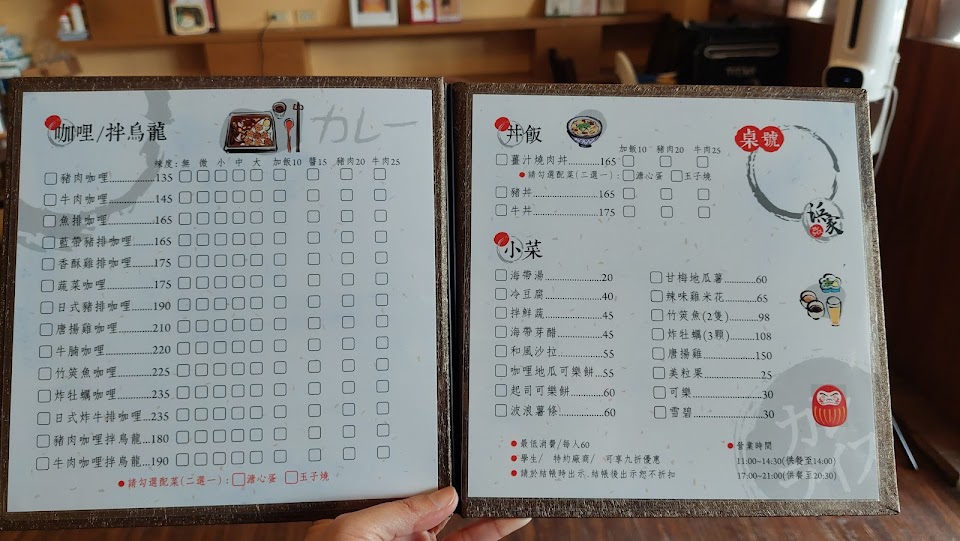 咖哩/拌烏龍
カレー
辣度: 無 微 小 中 大 加飯10 醬15 豬肉20 牛肉25
豬肉咖哩 135
牛肉咖哩 145
魚排咖哩 165
藍帶豬排咖哩 165
香酥雞排咖哩 175
蔬菜咖哩 175
日式豬排咖哩 190
唐揚雞咖哩 210
牛腩咖哩 220
竹筴魚咖哩 225
炸牡蠣咖哩 235
日式炸牛排咖哩 235
豬肉咖哩拌烏龍 180
牛肉咖哩拌烏龍 190
●請勾選配菜(二選一): 溏心蛋 玉子燒
丼飯
加飯10 豬肉20 牛肉25
薑汁燒肉丼 165
●請勾選配菜(二選一): 溏心蛋 玉子燒
豬丼 165
牛丼 175
桌號
浜家
小菜
海帶湯 20
冷豆腐 40
拌鮮蔬 45
海帶芽醋 45
和風沙拉 55
咖哩地瓜可樂餅 55
起司可樂餅 60
波浪薯條 60
甘梅地瓜薯 60
辣味雞米花 65
竹筴魚(2隻) 98
炸牡蠣(3顆) 108
唐揚雞 150
美粒果 25
可樂 30
雪碧 30
●最低消費/每人60
●學生/ 特約廠商/ 可享九折優惠
●請於結帳時出示.結帳後出示恕不折扣
●營業時間
11:00~14:30(供餐至14:00)
17:00~21:00(供餐至20:30)